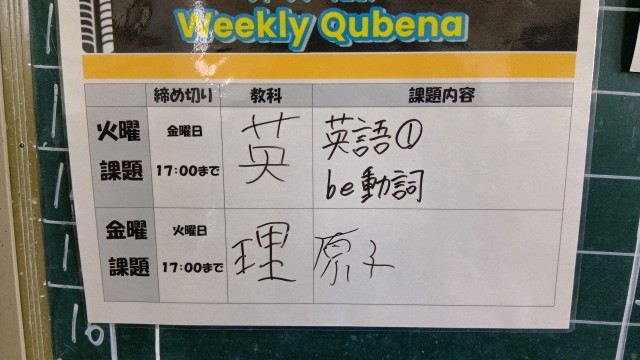 Weekly Qubena
締め切り 教科 課題内容
火曜 金曜日 英 英語①
課題 17:00まで be動詞
金曜 火曜日 理 原子
課題 17:00まで
16